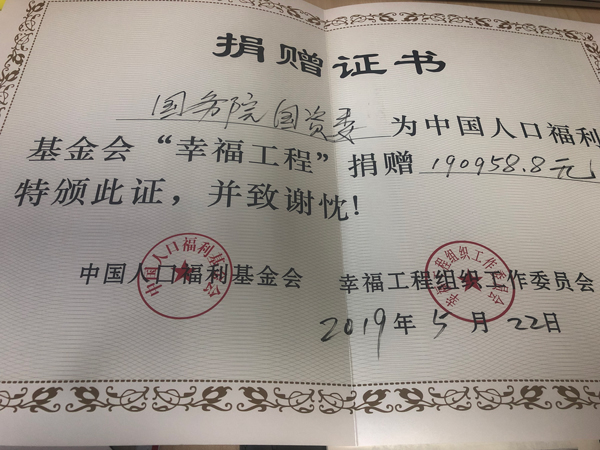 捐赠证书
国务院国资委 为中国人口福利
基金会“幸福工程”捐赠 190958.8元
特颁此证，并致谢忱！
中国人口福利基金会 幸福工程组织工作委员会
中国人口福利基金会
幸福工程组织工作委员会
2019年5月22日